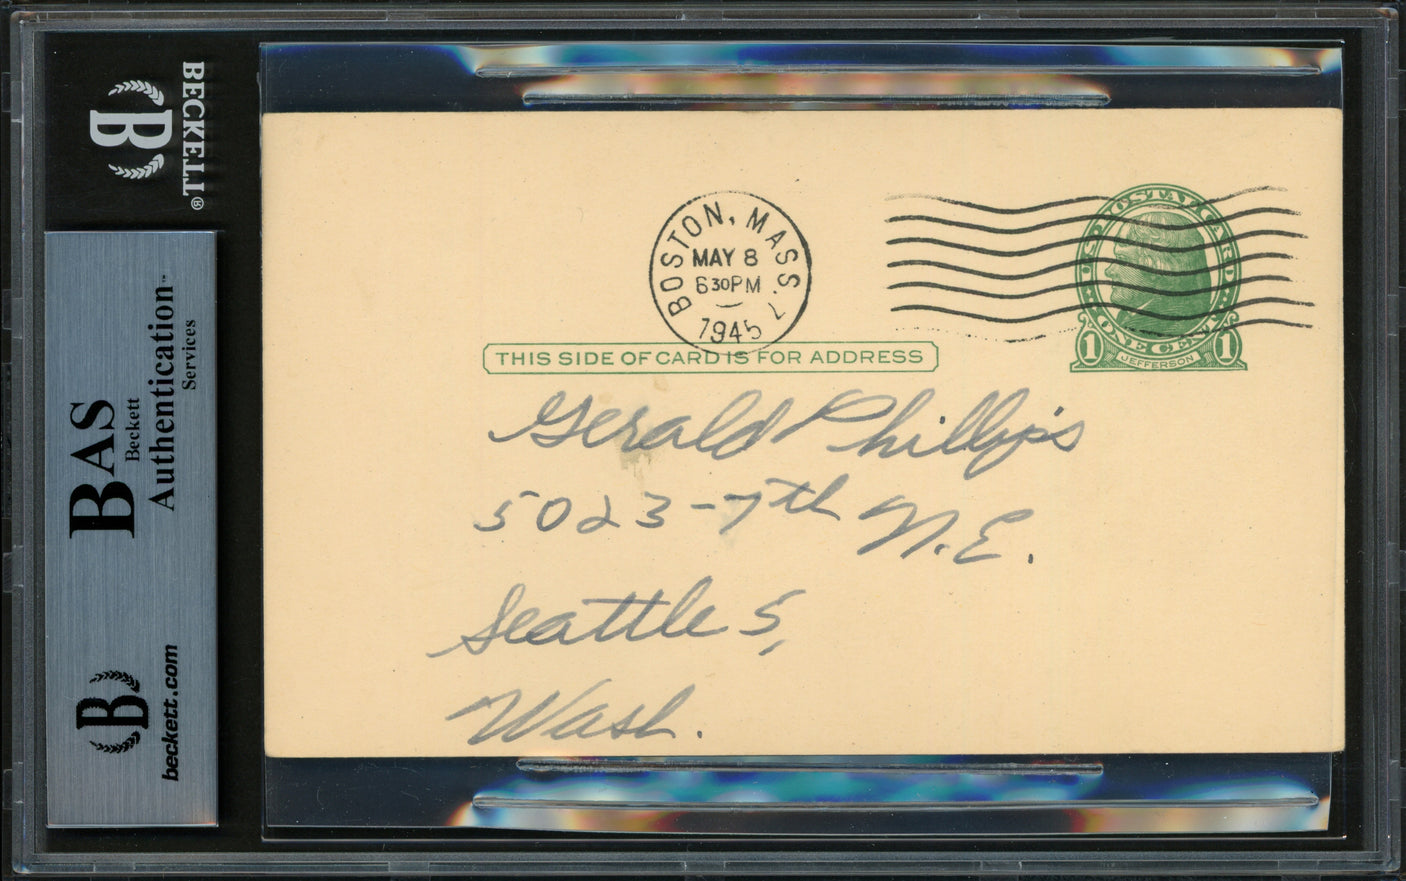 BECKETT®
B
BAS
Beckett
Authentication™
Services
B
beckett.com
BOSTON, MASS.
MAY 8
6 30 PM
1945
U.S. POSTAL CARD
ONE CENT
1 JEFFERSON 1
THIS SIDE OF CARD IS FOR ADDRESS
Gerald Phillips
5023-7th N.E.
Seattle 5,
Wash.